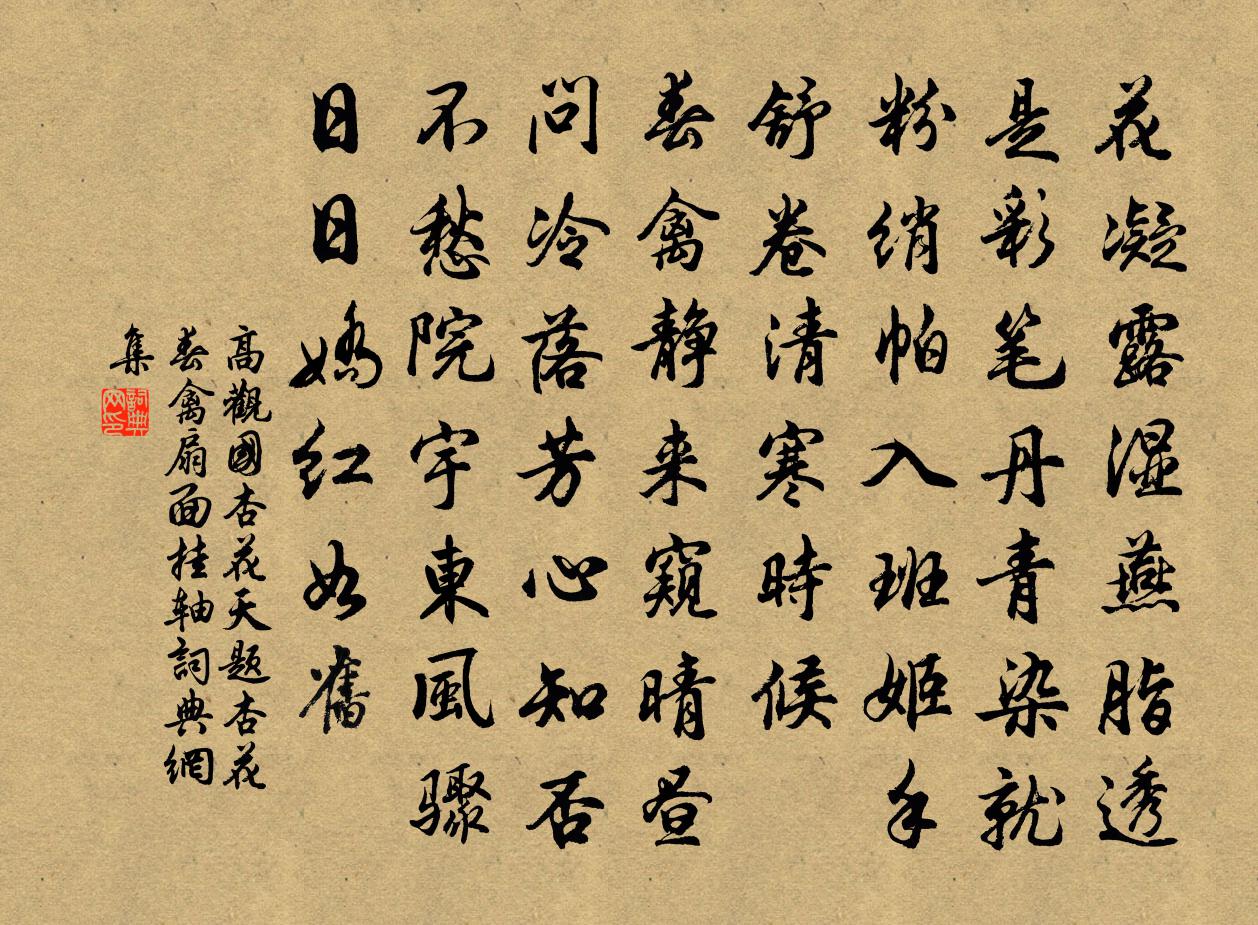 花凝露湿燕脂透
是彩笔丹青染就
粉绡帕入班姬手
舒卷清寒時候
春禽静来窺晴昼
問冷落芳心知否
不愁院宇東風骤
日日嬌红如舊
高觀國杏花天题杏花
春禽扇面挂轴詞典網
集
詞典
网印